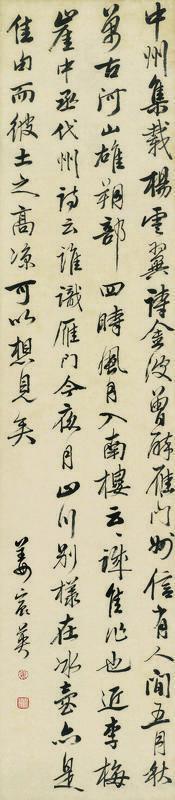 中州集載楊雲翼詩金波曾醉雁門州信有人間五月秋
萬古河山雄朔部四時風月入南樓云〻誠佳作也近李梅
崖中丞代州詩云誰識雁門今夜月山川別樣在冰壺亦是
佳句而彼土之高涼可以想見矣
姜宸英